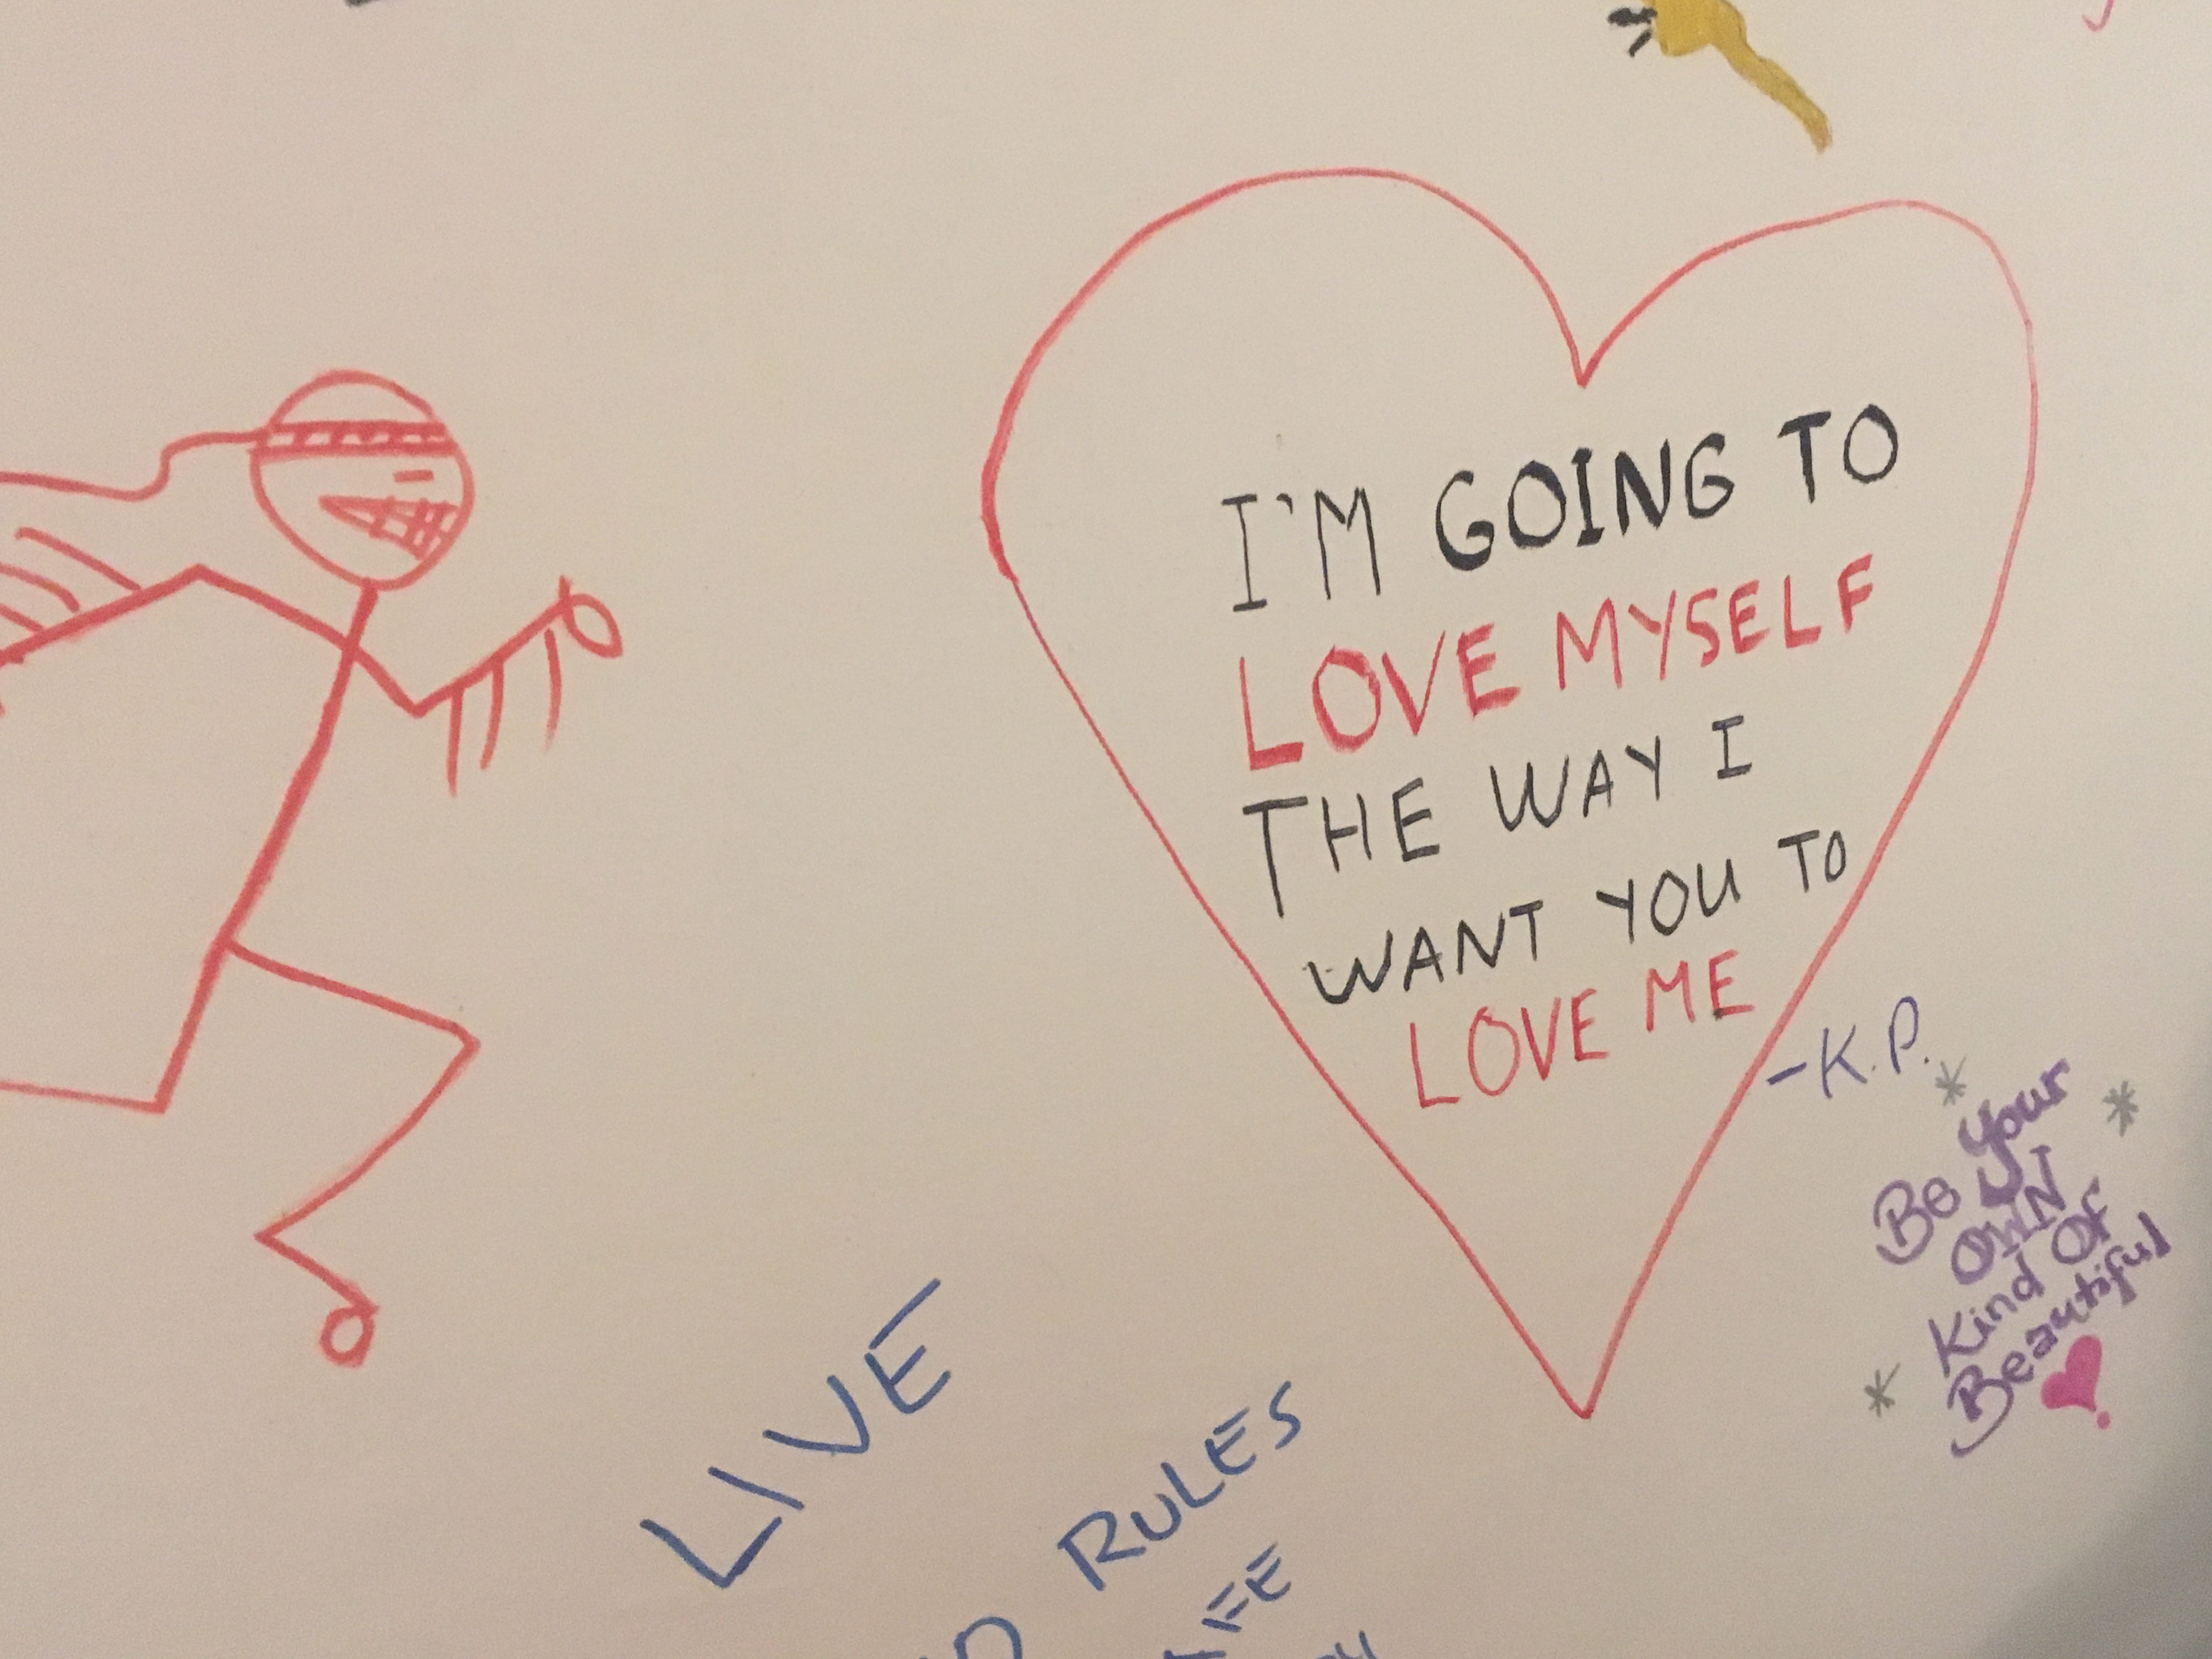 I'M GOING TO
LOVE MYSELF
THE WAY I
WANT YOU TO
LOVE ME
-K.P.
Be Your
OWN
Kind Of
Beautiful
LIVE
RULES